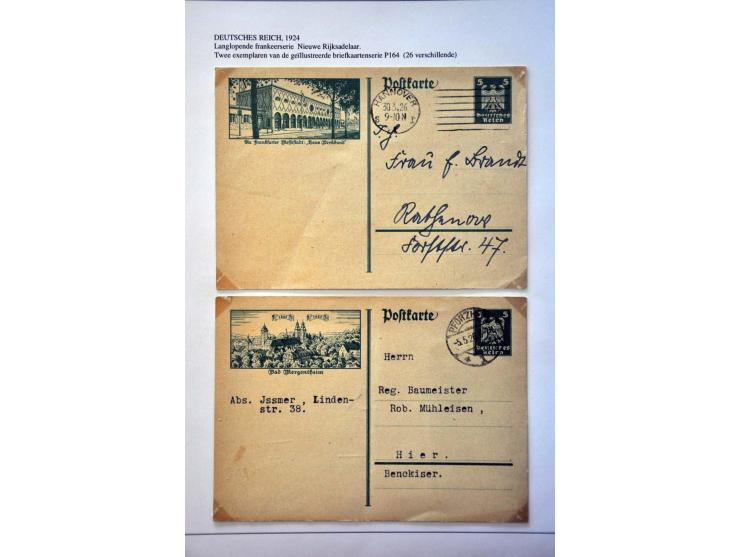 DEUTSCHES REICH, 1924
Langlopende frankeerserie Nieuwe Rijksadelaar.
Twee exemplaren van de geïllustreerde briefkaartenserie P164 (26 verschillende)
Postkarte
5 5
Deutsches
Reich
HANNOVER
30.3.26
9-10 N
S 1
Die Frankfurter Meßstadt: „Haus Werkbund"
Frau E. Brandt
Rathenow
Forststr. 47.
Postkarte
5
Deutsches
Reich
5.5.2
Bad Mergentheim
Herrn
Abs. Jssmer , Linden-
str. 38.
Reg. Baumeister
Rob. Mühleisen ,
Hier.
Benckiser.